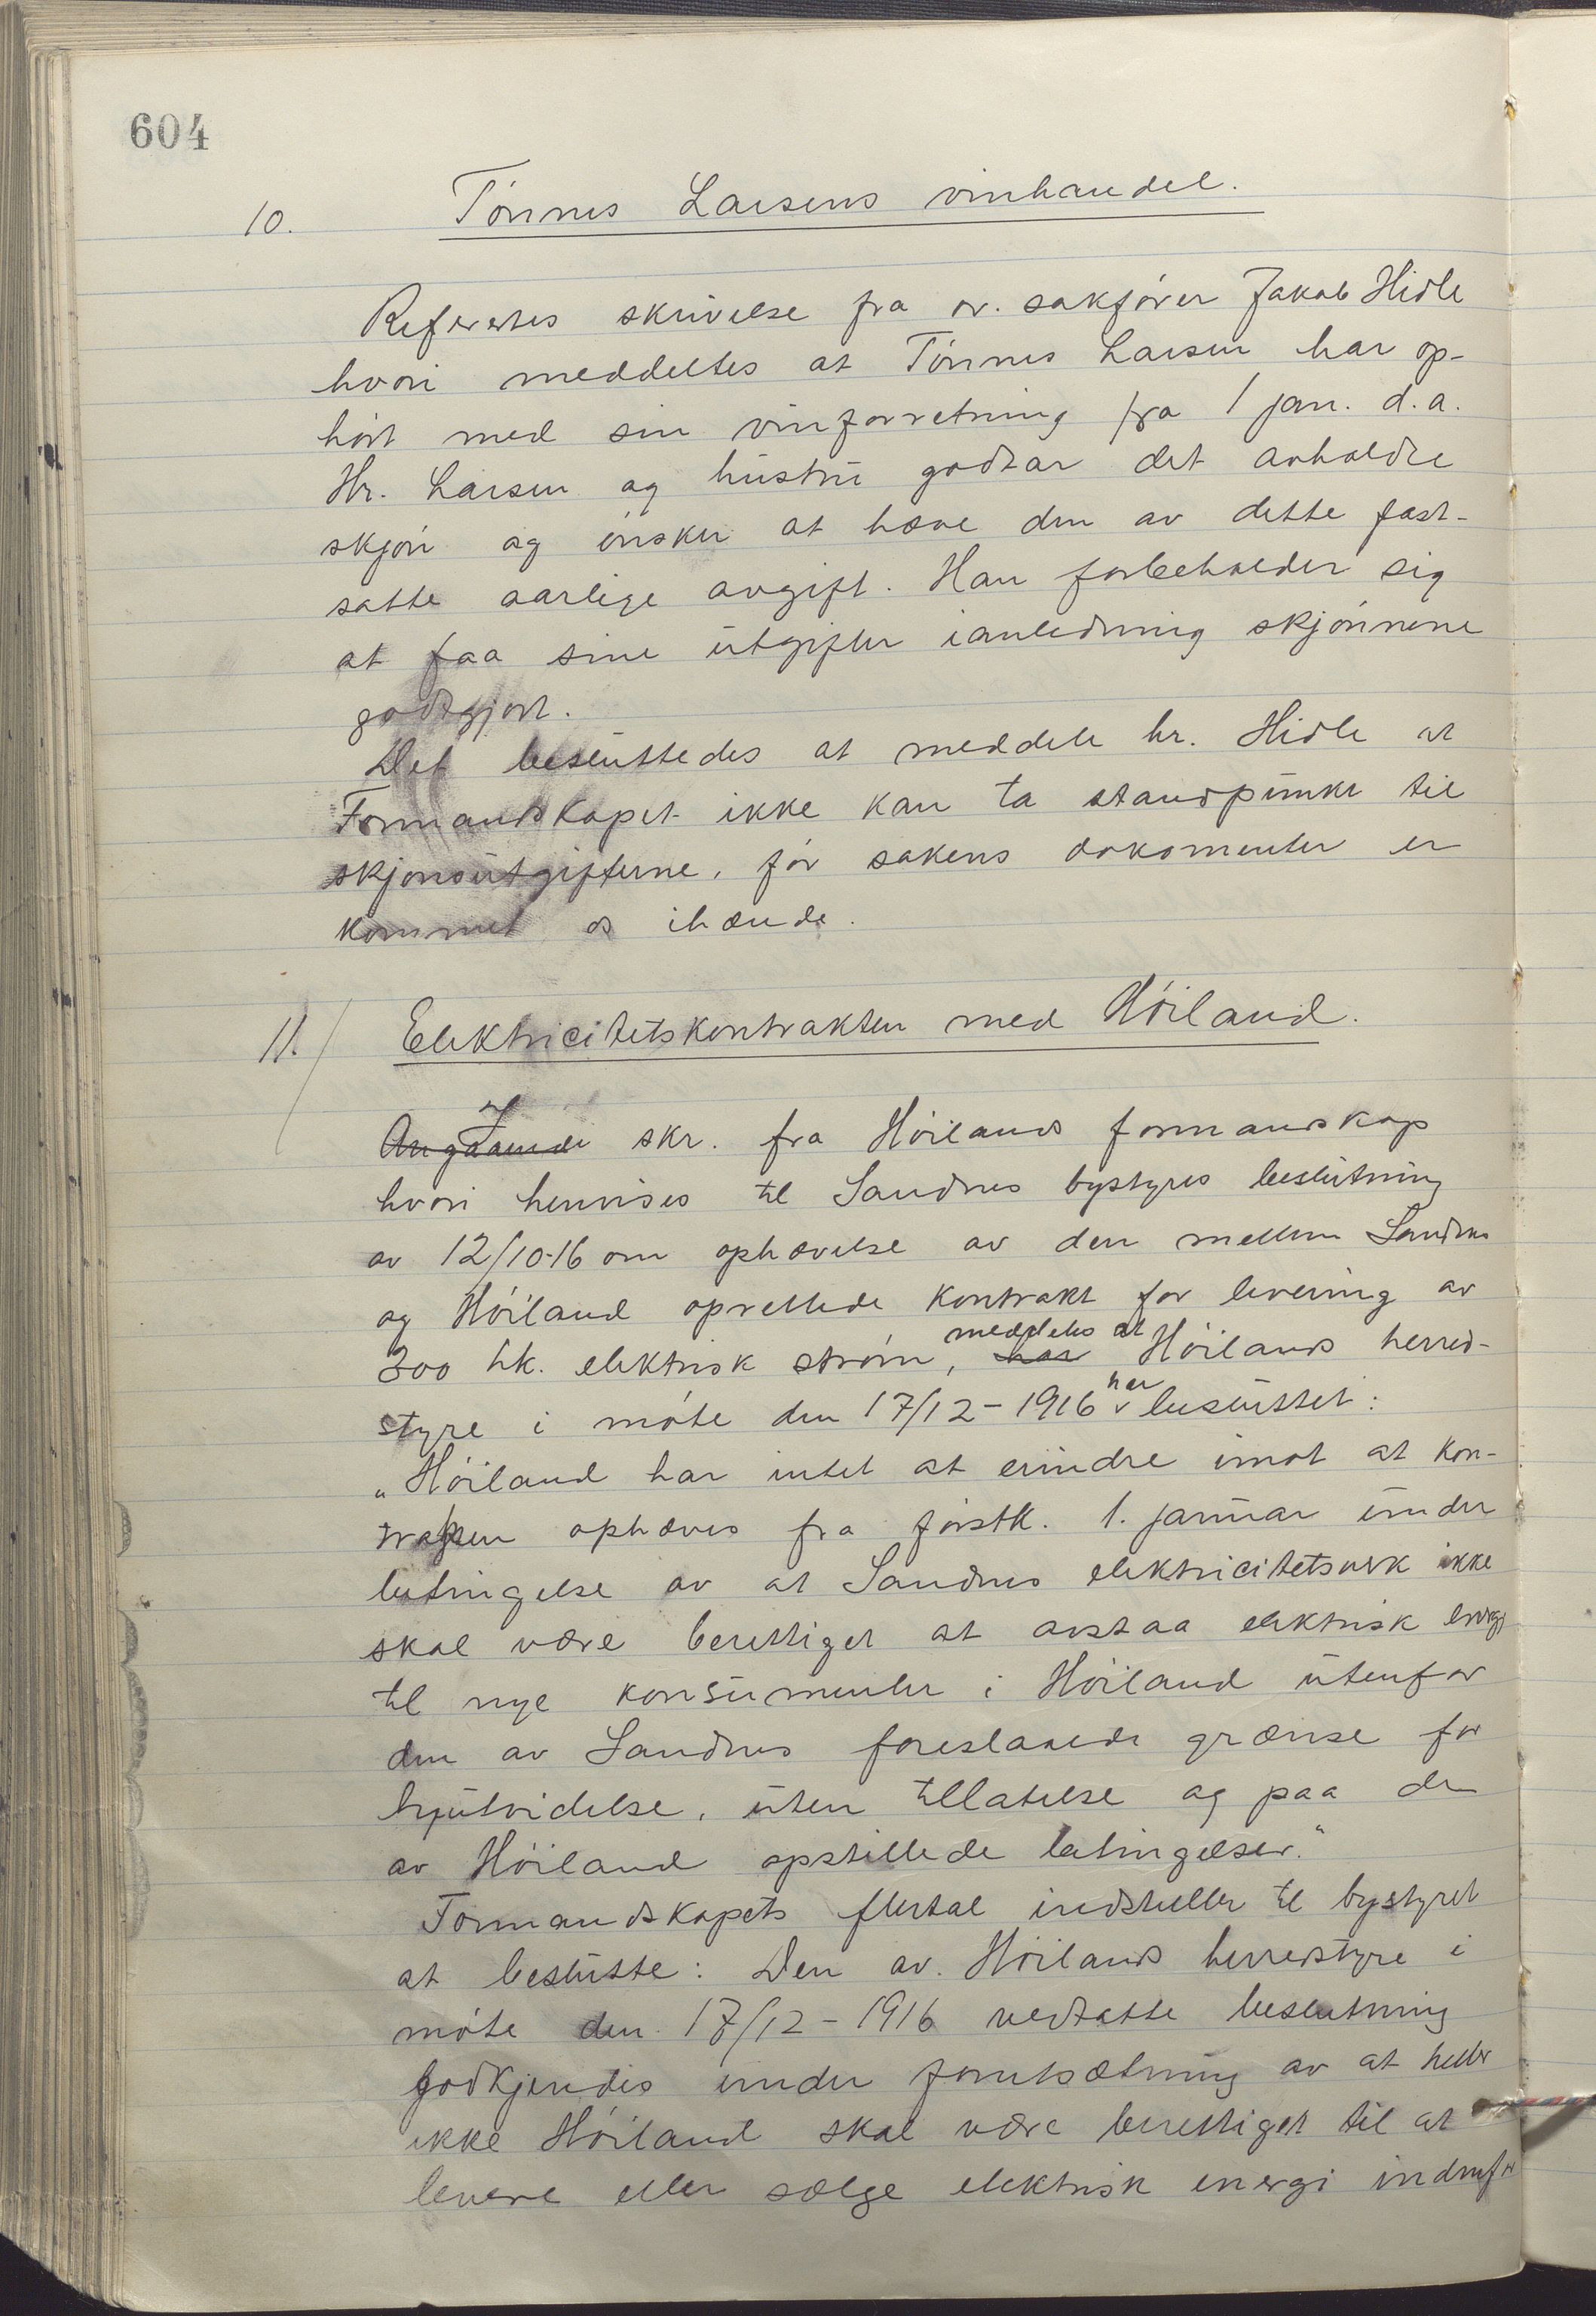 604
10. Tönnes Larsens vinhandel.
Refereertes skrivelse fra or. sakförer Jakob Hidle
hvori meddeltes at Tönnes Larsen har op-
hört med sin vinforretning fra 1 jan. d.a.
Hr. Larsen og hustru godtar det avholdte
skjön og önsker at hæve den av dette fast-
satte aarlige avgift. Han forbeholder sig
at faa sine utgifter ianledning skjönnene
godtgjort.
Det besluttedes at meddele hr. Hidle at
Formandskapet ikke kan ta standpunkt til
skjönsutgifterne, för sakens dokomenter er
kommet os ihænde.
11. Elektricitetskontrakten med Höiland.
Angaaende skr. fra Höilands formandskap
hvori henvises til Sandnes bystyres beslutning
av 12/10-16 om ophævelse av den mellem Sandnes
og Höiland oprettede kontrakt for levering av
300 hk. elektrisk ström, har meddeles at Höilands herred-
styre i möte den 17/12-1916 har besluttet:
"Höiland har intet at erindre imot at kon-
trakten ophæves fra förstk. 1. januar under
betingelse av at Sandnes elektricitetsverk ikke
skal være berettiget at avstaa elektrisk energi
til nye konsumenter i Höiland utenfor
den av Sandnes foreslaaede grænse for
byutvidelse, uten tillatelse og paa de
av Höiland opstillede betingelser."
Formandskapets flertal indstiller til bystyret
at beslutte: Den av Höilands herredstyre i
möte den 17/12-1916 vedtatte beslutning
godkjendes under forutsætning av at heller
ikke Höiland skal være berettiget til at
levere eller sælge elektrisk energi indenfor